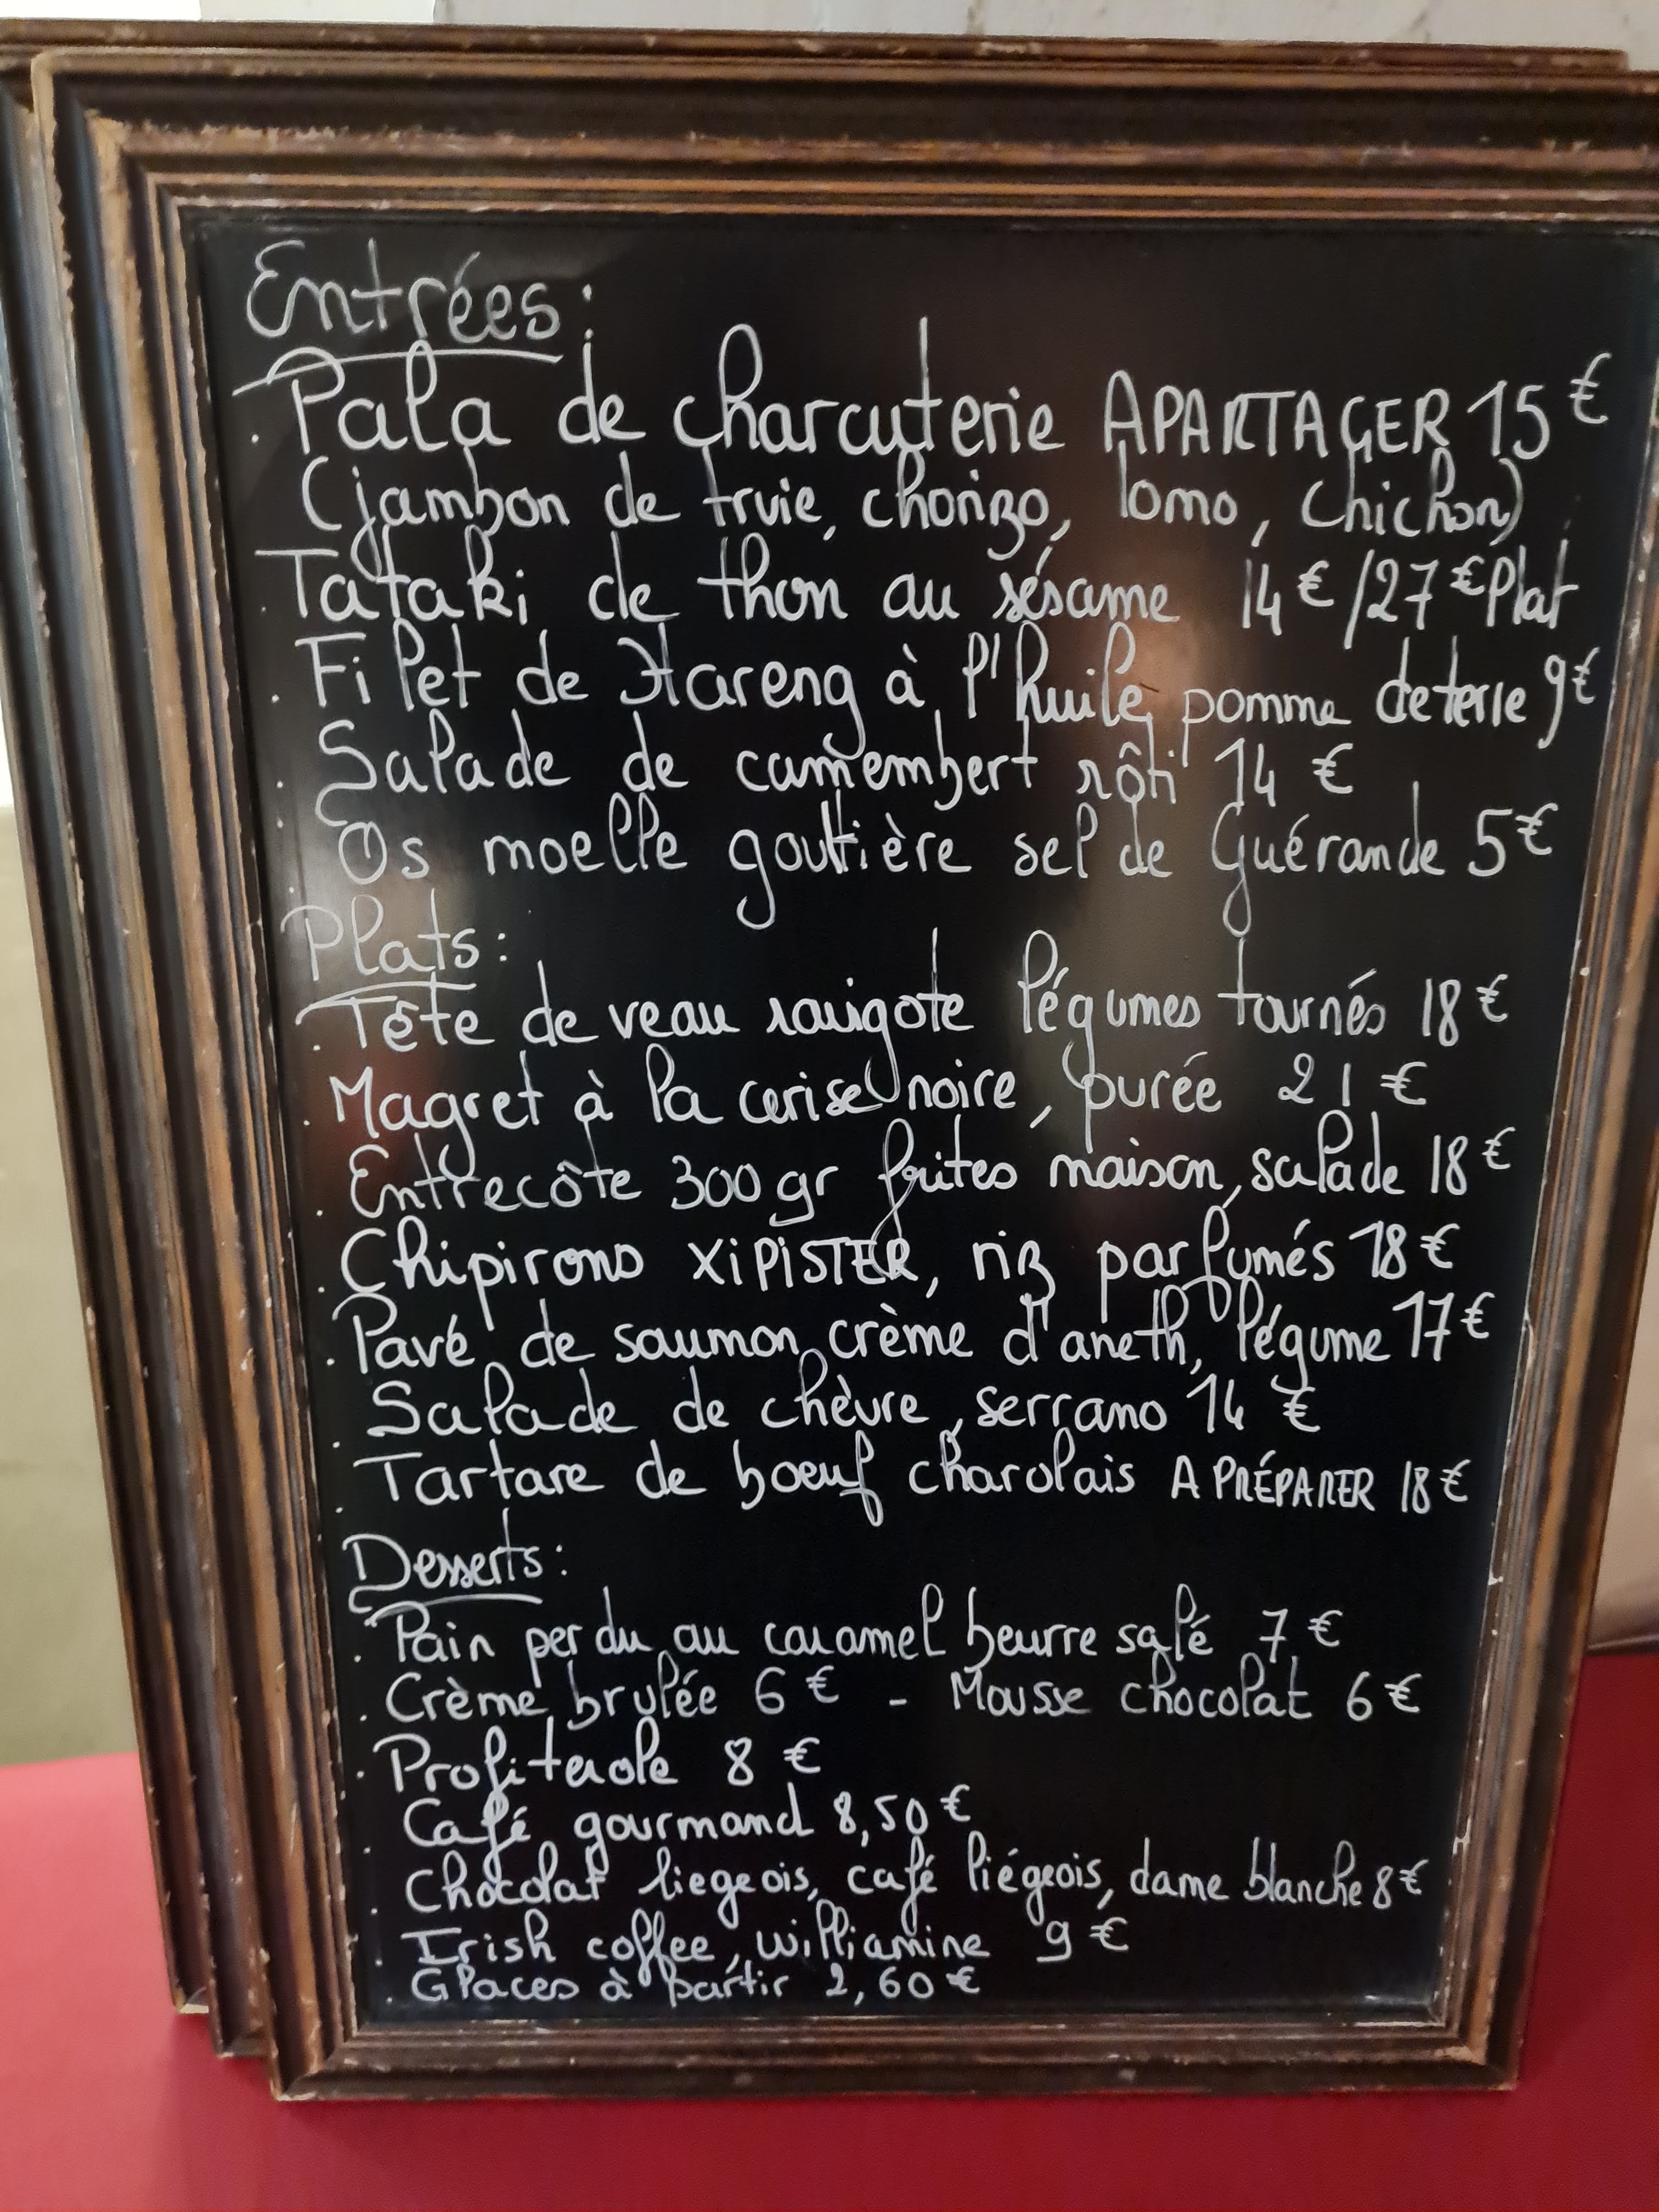 Entrées :
. Pala de charcuterie A PARTAGER 15 €
(jambon de truie, chorizo, lomo, chichon)
. Tataki de thon au sésame 14 € / 27 € Plat
. Filet de Hareng à l'huile, pomme de terre 9 €
. Salade de camembert rôti 14 €
. Os moelle gouttière sel de Guérande 5 €
Plats :
. Tête de veau ravigote légumes tournés 18 €
. Magret à la cerise noire, purée 21 €
. Entrecôte 300 gr frites maison, salade 18 €
. Chipirons XIPISTER, riz parfumés 18 €
. Pavé de saumon, crème d'aneth, légume 17 €
. Salade de chèvre, serrano 14 €
. Tartare de boeuf charolais A PRÉPARER 18 €
Desserts :
. Pain perdu au caramel beurre salé 7 €
. Crème brulée 6 € - Mousse chocolat 6 €
. Profiterole 8 €
. Café gourmand 8,50 €
. Chocolat liegeois, café liégeois, dame blanche 8 €
. Irish coffee, williamine 9 €
. Glaces à partir 2,60 €